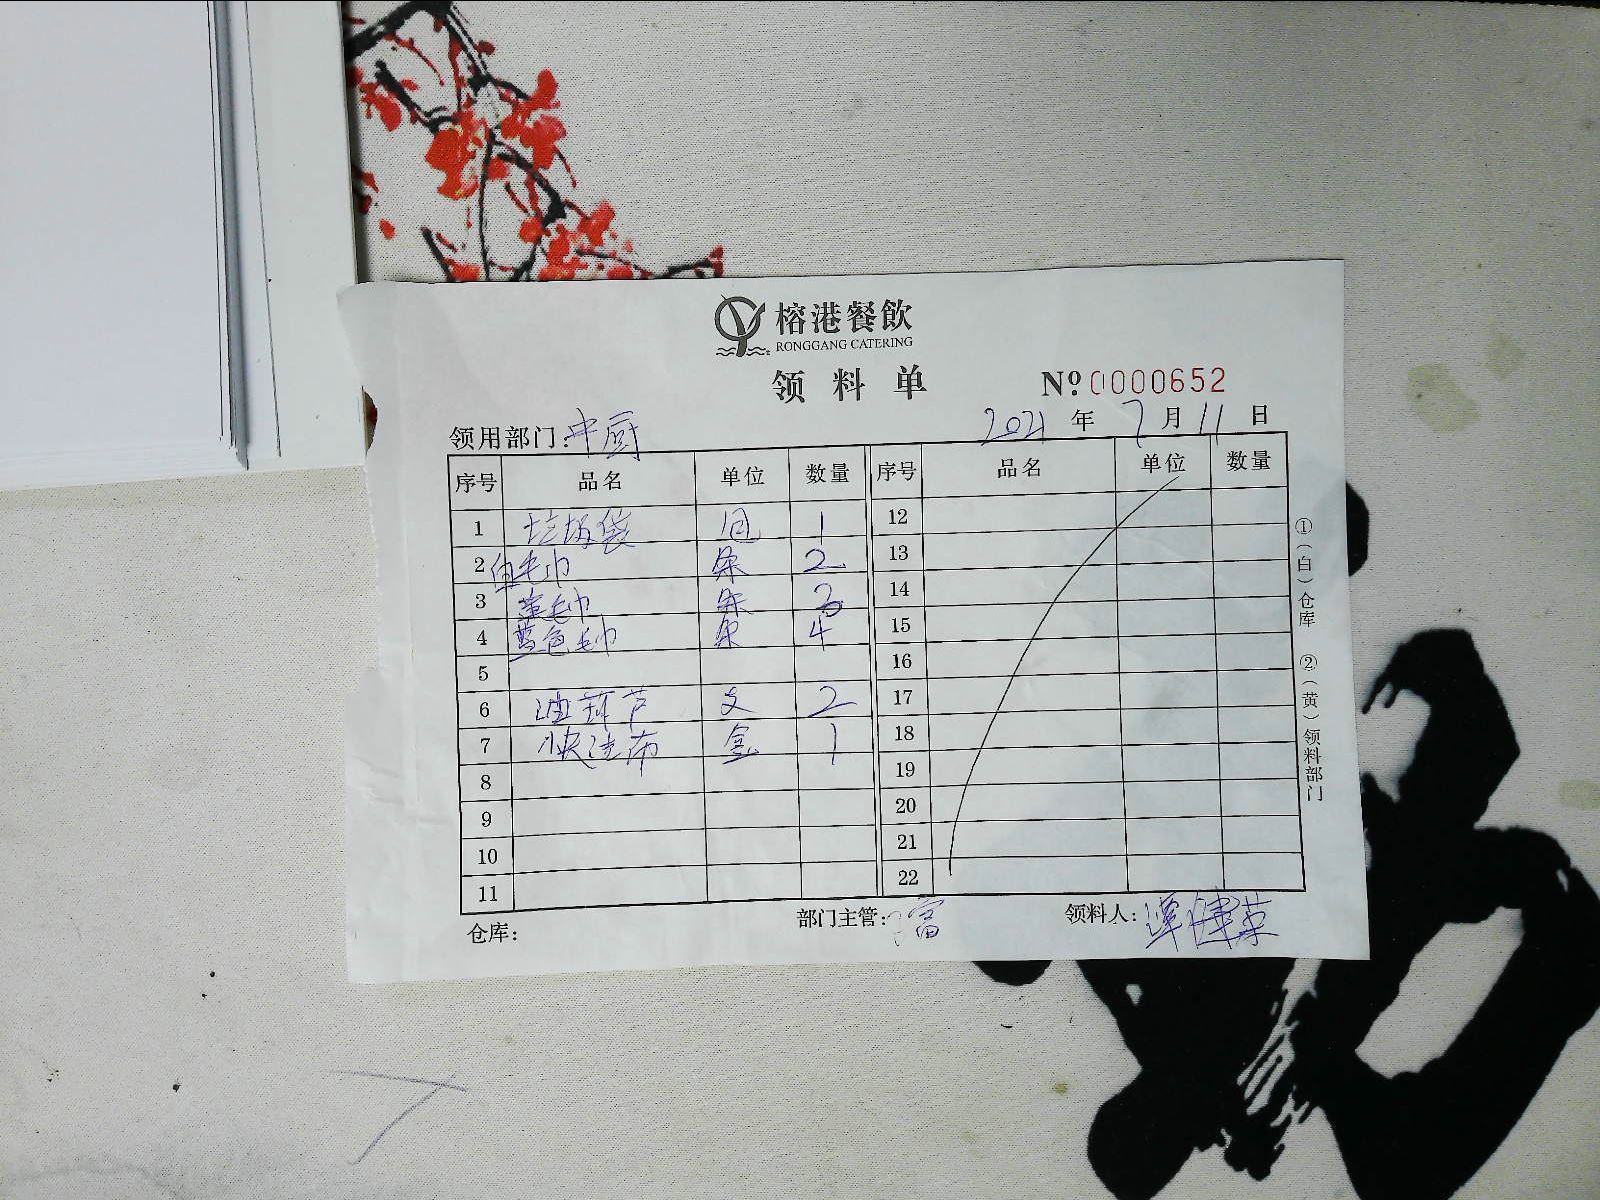 榕港餐飲
RONGGANG CATERING
领料单
№ 0000652
领用部门:中厨 2021 年 7 月 11 日
序号 品名 单位 数量 序号 品名 单位 数量
1 垃圾袋 1 12
2 白毛巾 条 2 13
3 毛巾 条 14
4 蓝色毛巾 条 4 15
5 16
6 葫芦 支 2 17
7 快洁布 盒 1 18
8 19
9 20
10 21
11 22
仓库: 部门主管: 富 领料人: 谭健荣
①(白)仓库 ②(黄)领料部门